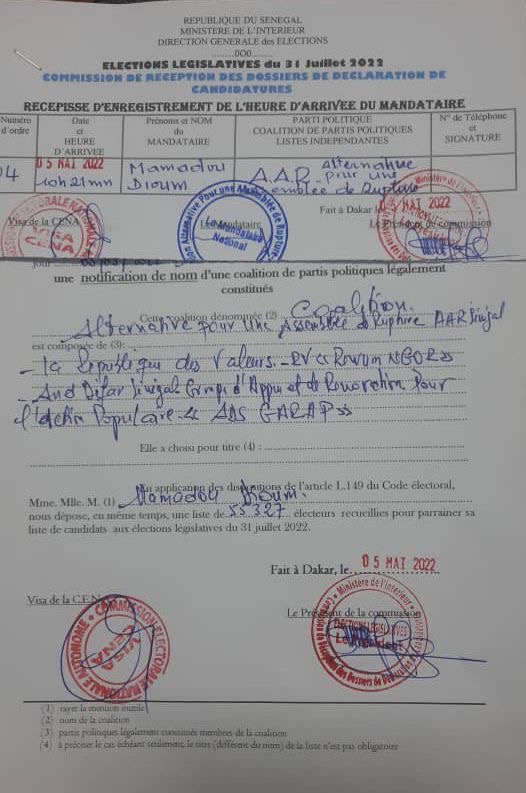 REPUBLIQUE DU SENEGAL
MINISTERE DE L'INTERIEUR
DIRECTION GENERALE des ELECTIONS
.........0O0.........
ELECTIONS LEGISLATIVES du 31 Juillet 2022
COMMISSION DE RECEPTION DES DOSSIERS DE DECLARATION DE
CANDIDATURES
RECEPISSE D'ENREGISTREMENT DE L'HEURE D'ARRIVEE DU MANDATAIRE
Numéro d'ordre
Date et HEURE D'ARRIVEE
Prénoms et NOM du MANDATAIRE
PARTI POLITIQUE COALITION DE PARTIS POLITIQUES LISTES INDEPENDANTES
N° de Téléphone et SIGNATURE
04
05 MAI 2022
10h21mn
Mamadou Dioum
A.A.R Alternative pour une Assemblée de Rupture
Fait à Dakar le 05 MAI 2022
Visa de la CENA
Le Mandataire
Le Président du commission
VISA CENA
Alternative Pour une Assemblée de Rupture
Le Mandataire National
jour
une notification de nom d'une coalition de partis politiques légalement
constitués
Cette coalition dénommée (2) Coalition
Alternative pour une Assemblée de Rupture AAR Sénégal
est composée de (3):
- La République des Valeurs - RV
- And Défar Sénégal Groupe d'Appui et de Pour
l'Action Populaire
Elle a choisi pour titre (4) :
En application des dispositions de l'article L.149 du Code électoral,
Mme. Mlle. M. (1) Mamadou Dioum
nous dépose, en même temps, une liste de 55327 électeurs recueillies pour parrainer sa
liste de candidats aux élections législatives du 31 juillet 2022.
Fait à Dakar, le 05 MAI 2022
Visa de la C.E.N.
Le Président de la commission
COMMISSION ELECTORALE NATIONALE AUTONOME
VISA CENA
Ministère de l'Intérieur
ELECTIONS LEGISLATIVES
Le Président
(1) rayer la mention inutile
(2) nom de la coalition
(3) partis politiques légalement constitués membres de la coalition
(4) à préciser le cas échéant seulement, le titre (différent du nom) de la liste n'est pas obligatoire